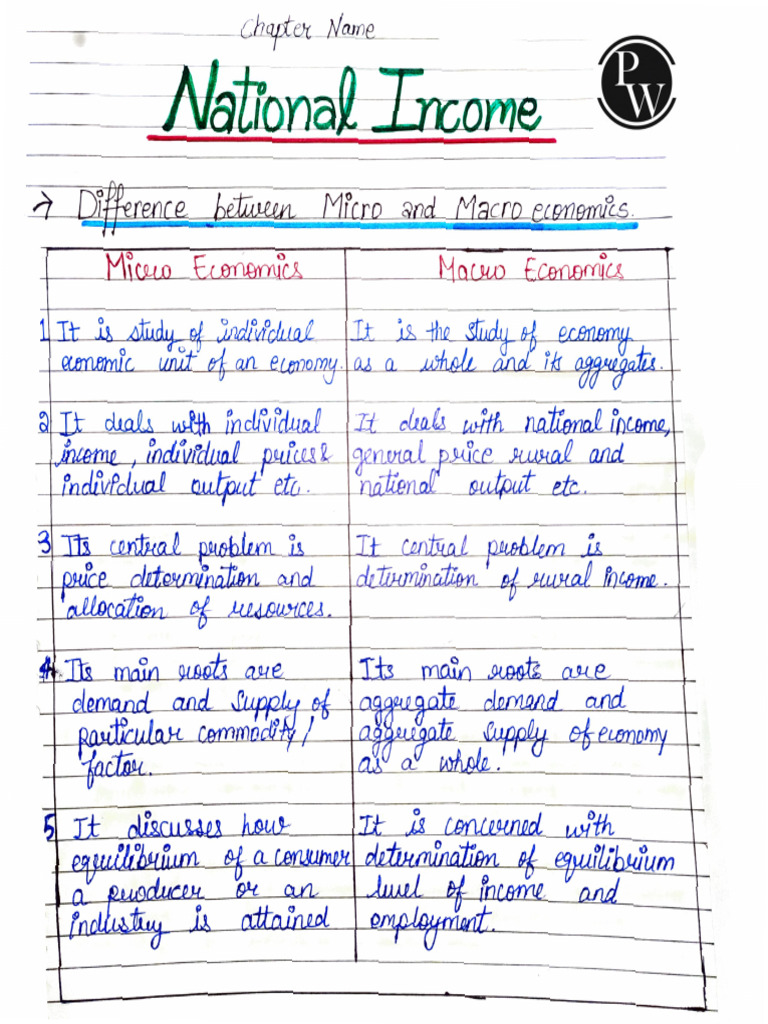 Chapter Name
National Income
PW
→ Difference between Micro and Macro economics.
Micro Economics
Macro Economics
1 It is study of individual
economic unit of an economy.
It is the study of economy
as a whole and its aggregates.
2 It deals with individual
income, individual prices &
individual output etc.
It deals with national income,
general price rural and
national output etc.
3 Its central problem is
price determination and
allocation of resources.
It central problem is
determination of rural income.
4. Its main roots are
demand and supply of
particular commodity/
factor.
Its main roots are
aggregate demand and
aggregate supply of economy
as a whole.
5 It discusses how
equilibrium of a consumer
a producer or an
industry is attained
It is concerned with
determination of equilibrium
level of income and
employment.